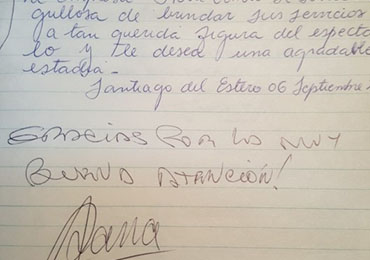 gullosa de brindar sus servicios
a tan querida figura del especta
lo y le desea una agradable
estadia.-
Santiago del Estero 06 Septiembre.
GRACIAS POR LA MUY
BUENA ATENCIÓN!